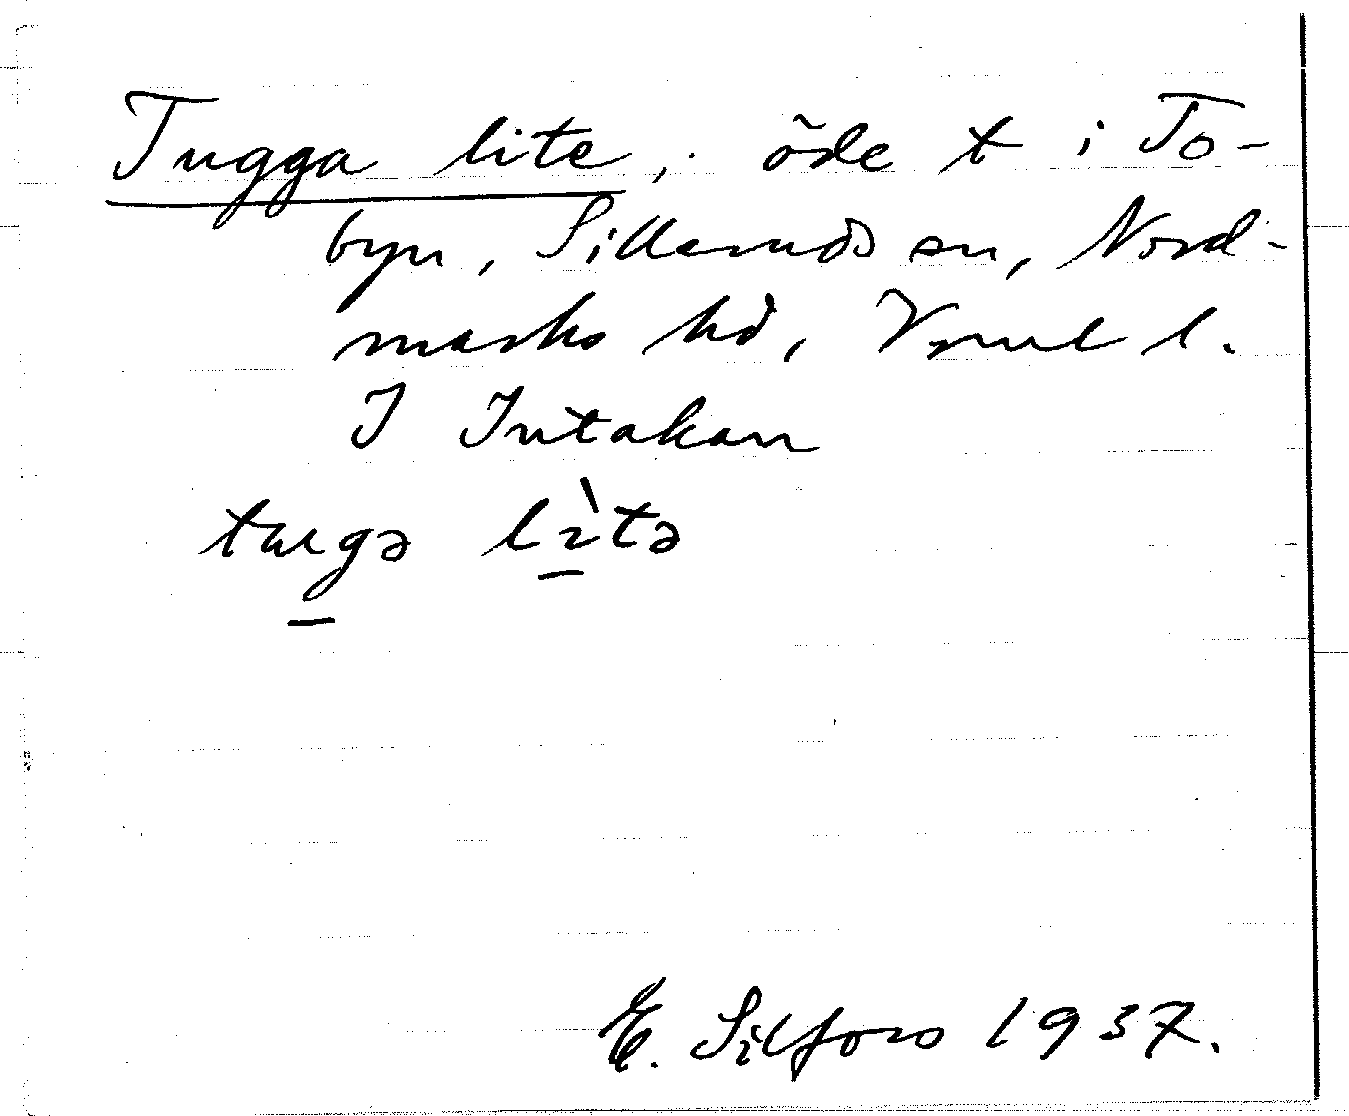 Tugga lite, öde t i To-
byn, Silleruds sn, Nord-
marks hd, Vrml l.
I Intakan
tuɡə lìtə
E. Silfors 1937.